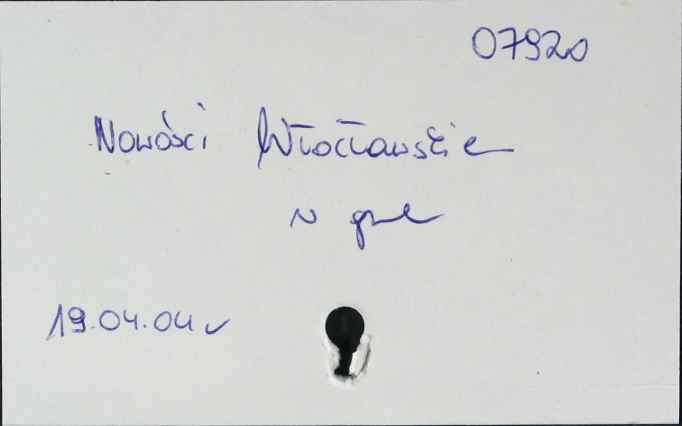 07920
Nowości Włocławskie
19.04.04